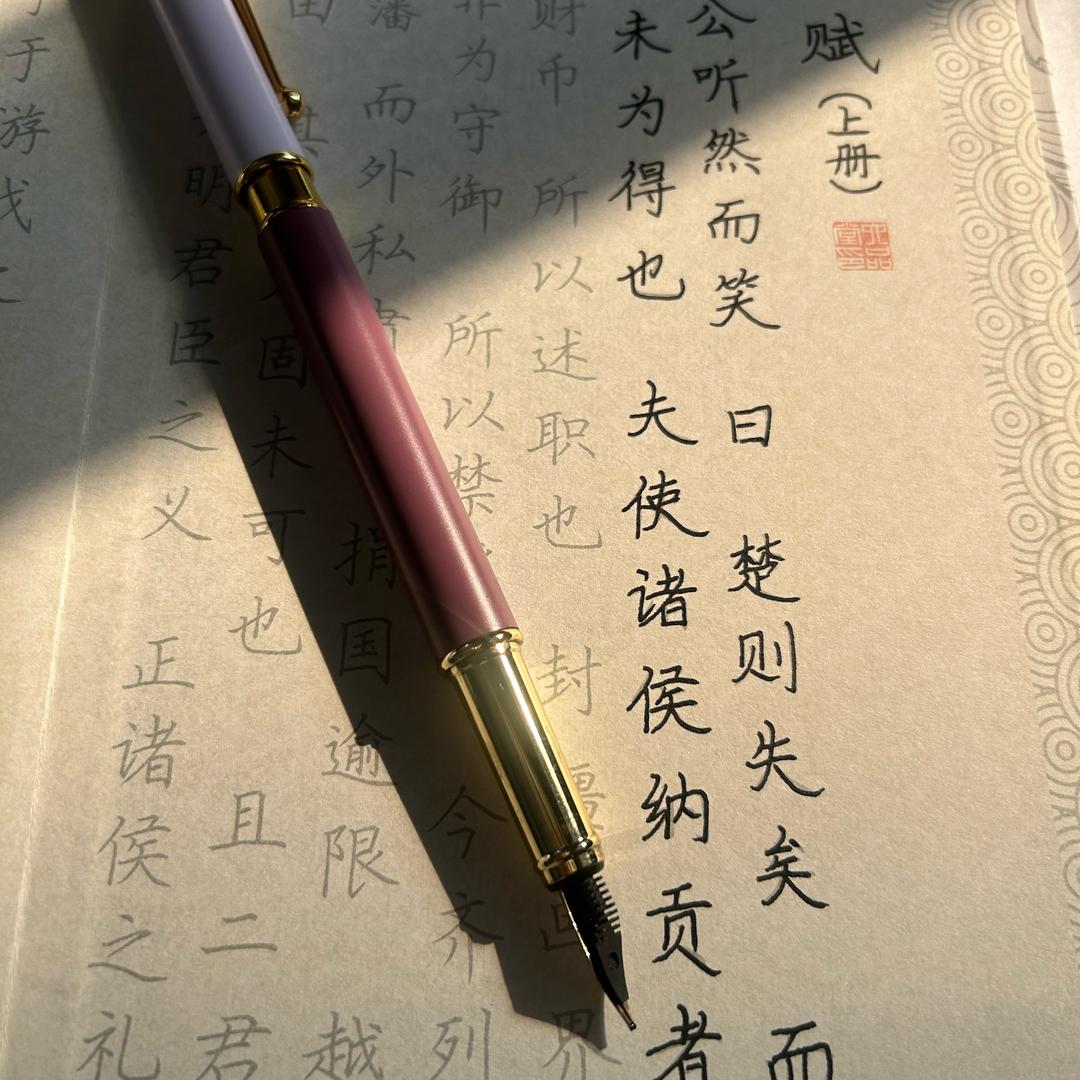 赋（上册）
公听然而笑 曰 楚则失矣 而
未为得也 夫使诸侯纳贡者
财币 所以述职也 封疆画界
非为守御 所以禁 今齐列
藩 而外私肃 捐国逾限 越
田 其 固未可也 且二君
明君臣之义 正诸侯之礼
于游戏之